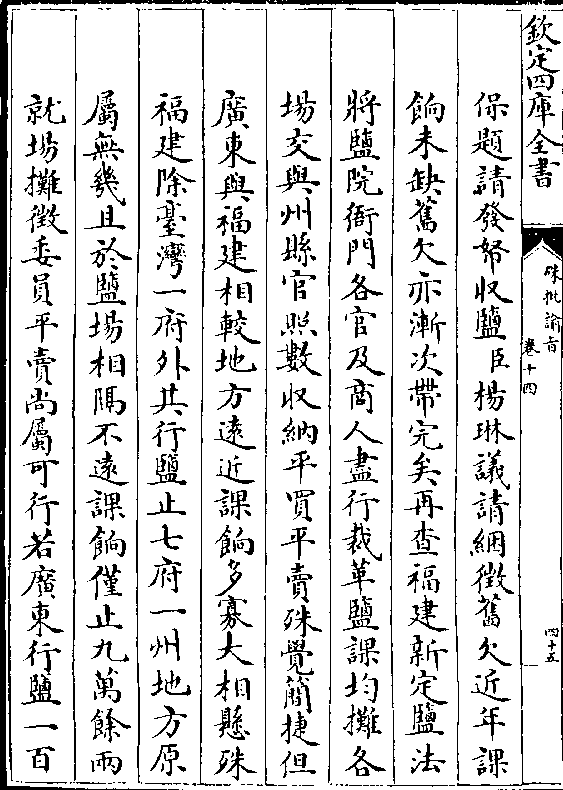 欽定四庫全書
硃批諭旨
卷十四
四十五
保題請發帑収鹽臣楊琳議請綑徵舊欠近年課
餉未缺舊欠亦漸次帶完矣再查福建新定鹽法
將鹽院衙門各官及商人盡行裁革鹽課均攤各
場交與州縣官照數収納平買平賣殊覺簡捷但
廣東與福建相較地方遠近課餉多寡大相懸殊
福建除臺灣一府外其行鹽止七府一州地方原
屬無幾且於鹽場相隔不遠課餉僅止九萬餘兩
就場攤徵委員平賣尚屬可行若廣東行鹽一百